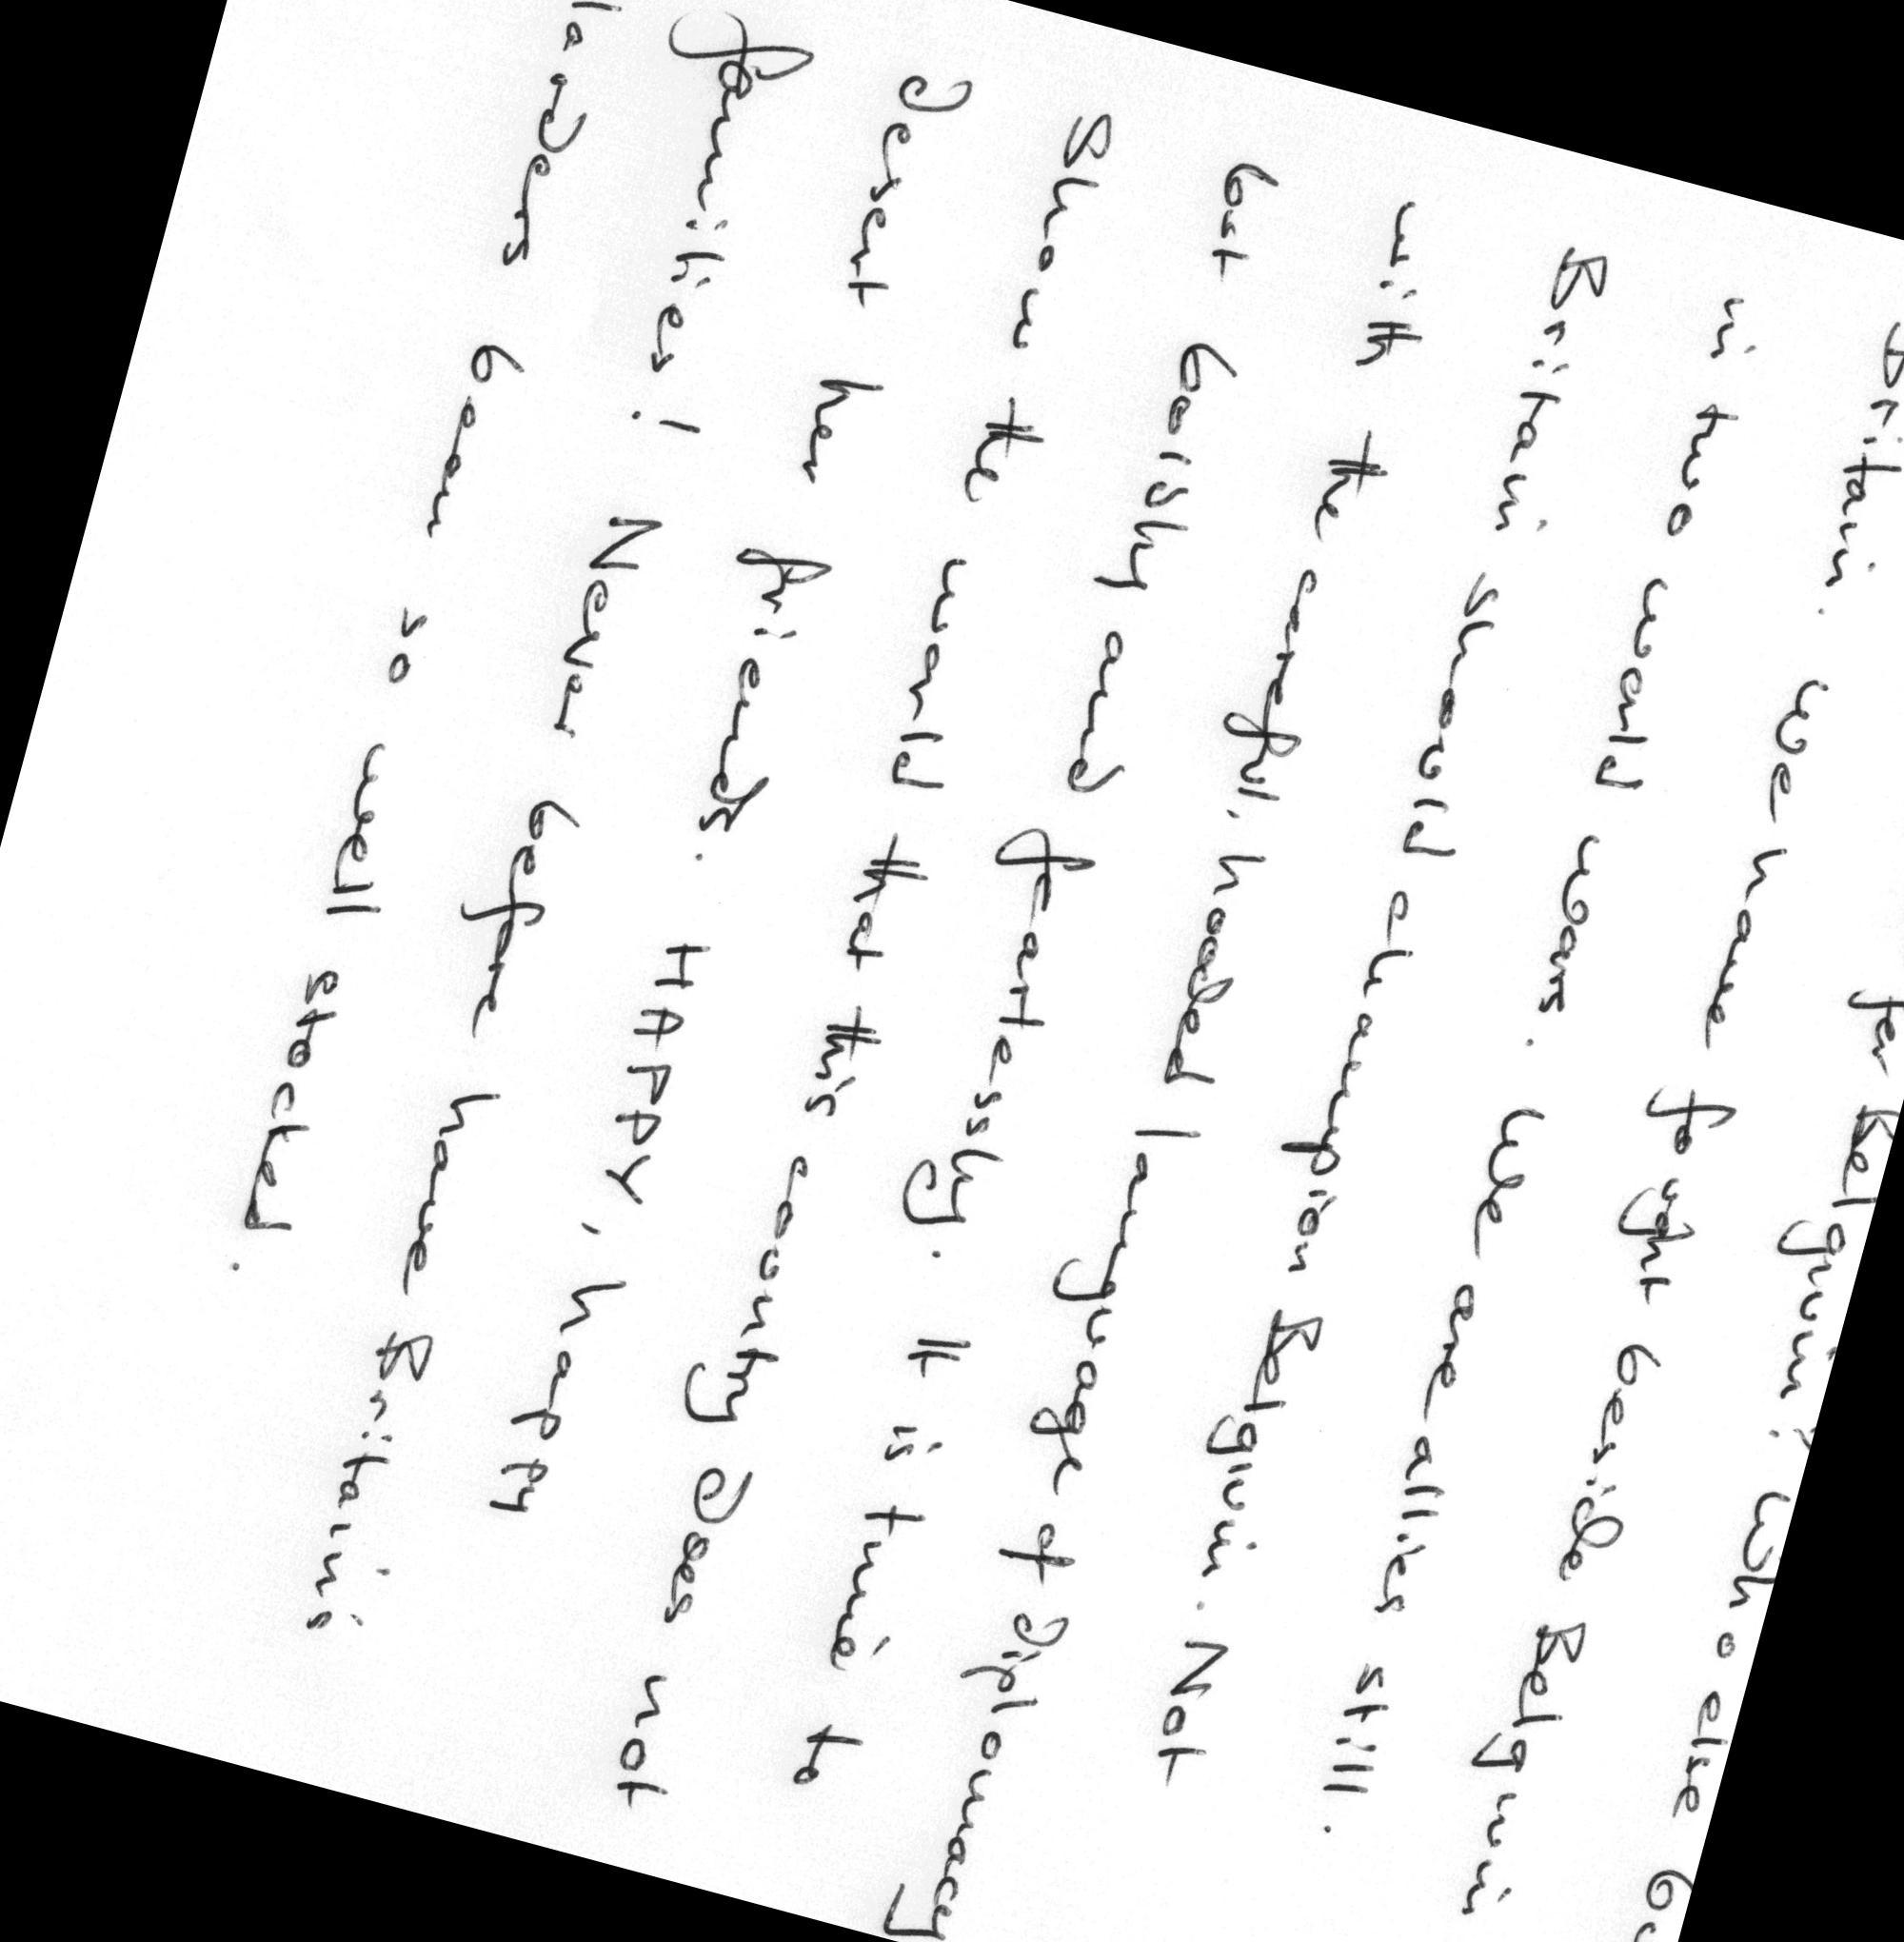 for Belgium? Who else
Britain. We have fought beside Belgium
in two world wars. We are allies still.
Britain should champion Belgium. Not
with the careful, hooded language of diplomacy
but boldly and fearlessly. It is time to
Show the world that this country does not
desert her friends. HAPPY, happy
families! Never before have Britain's
larders been so well stocked.